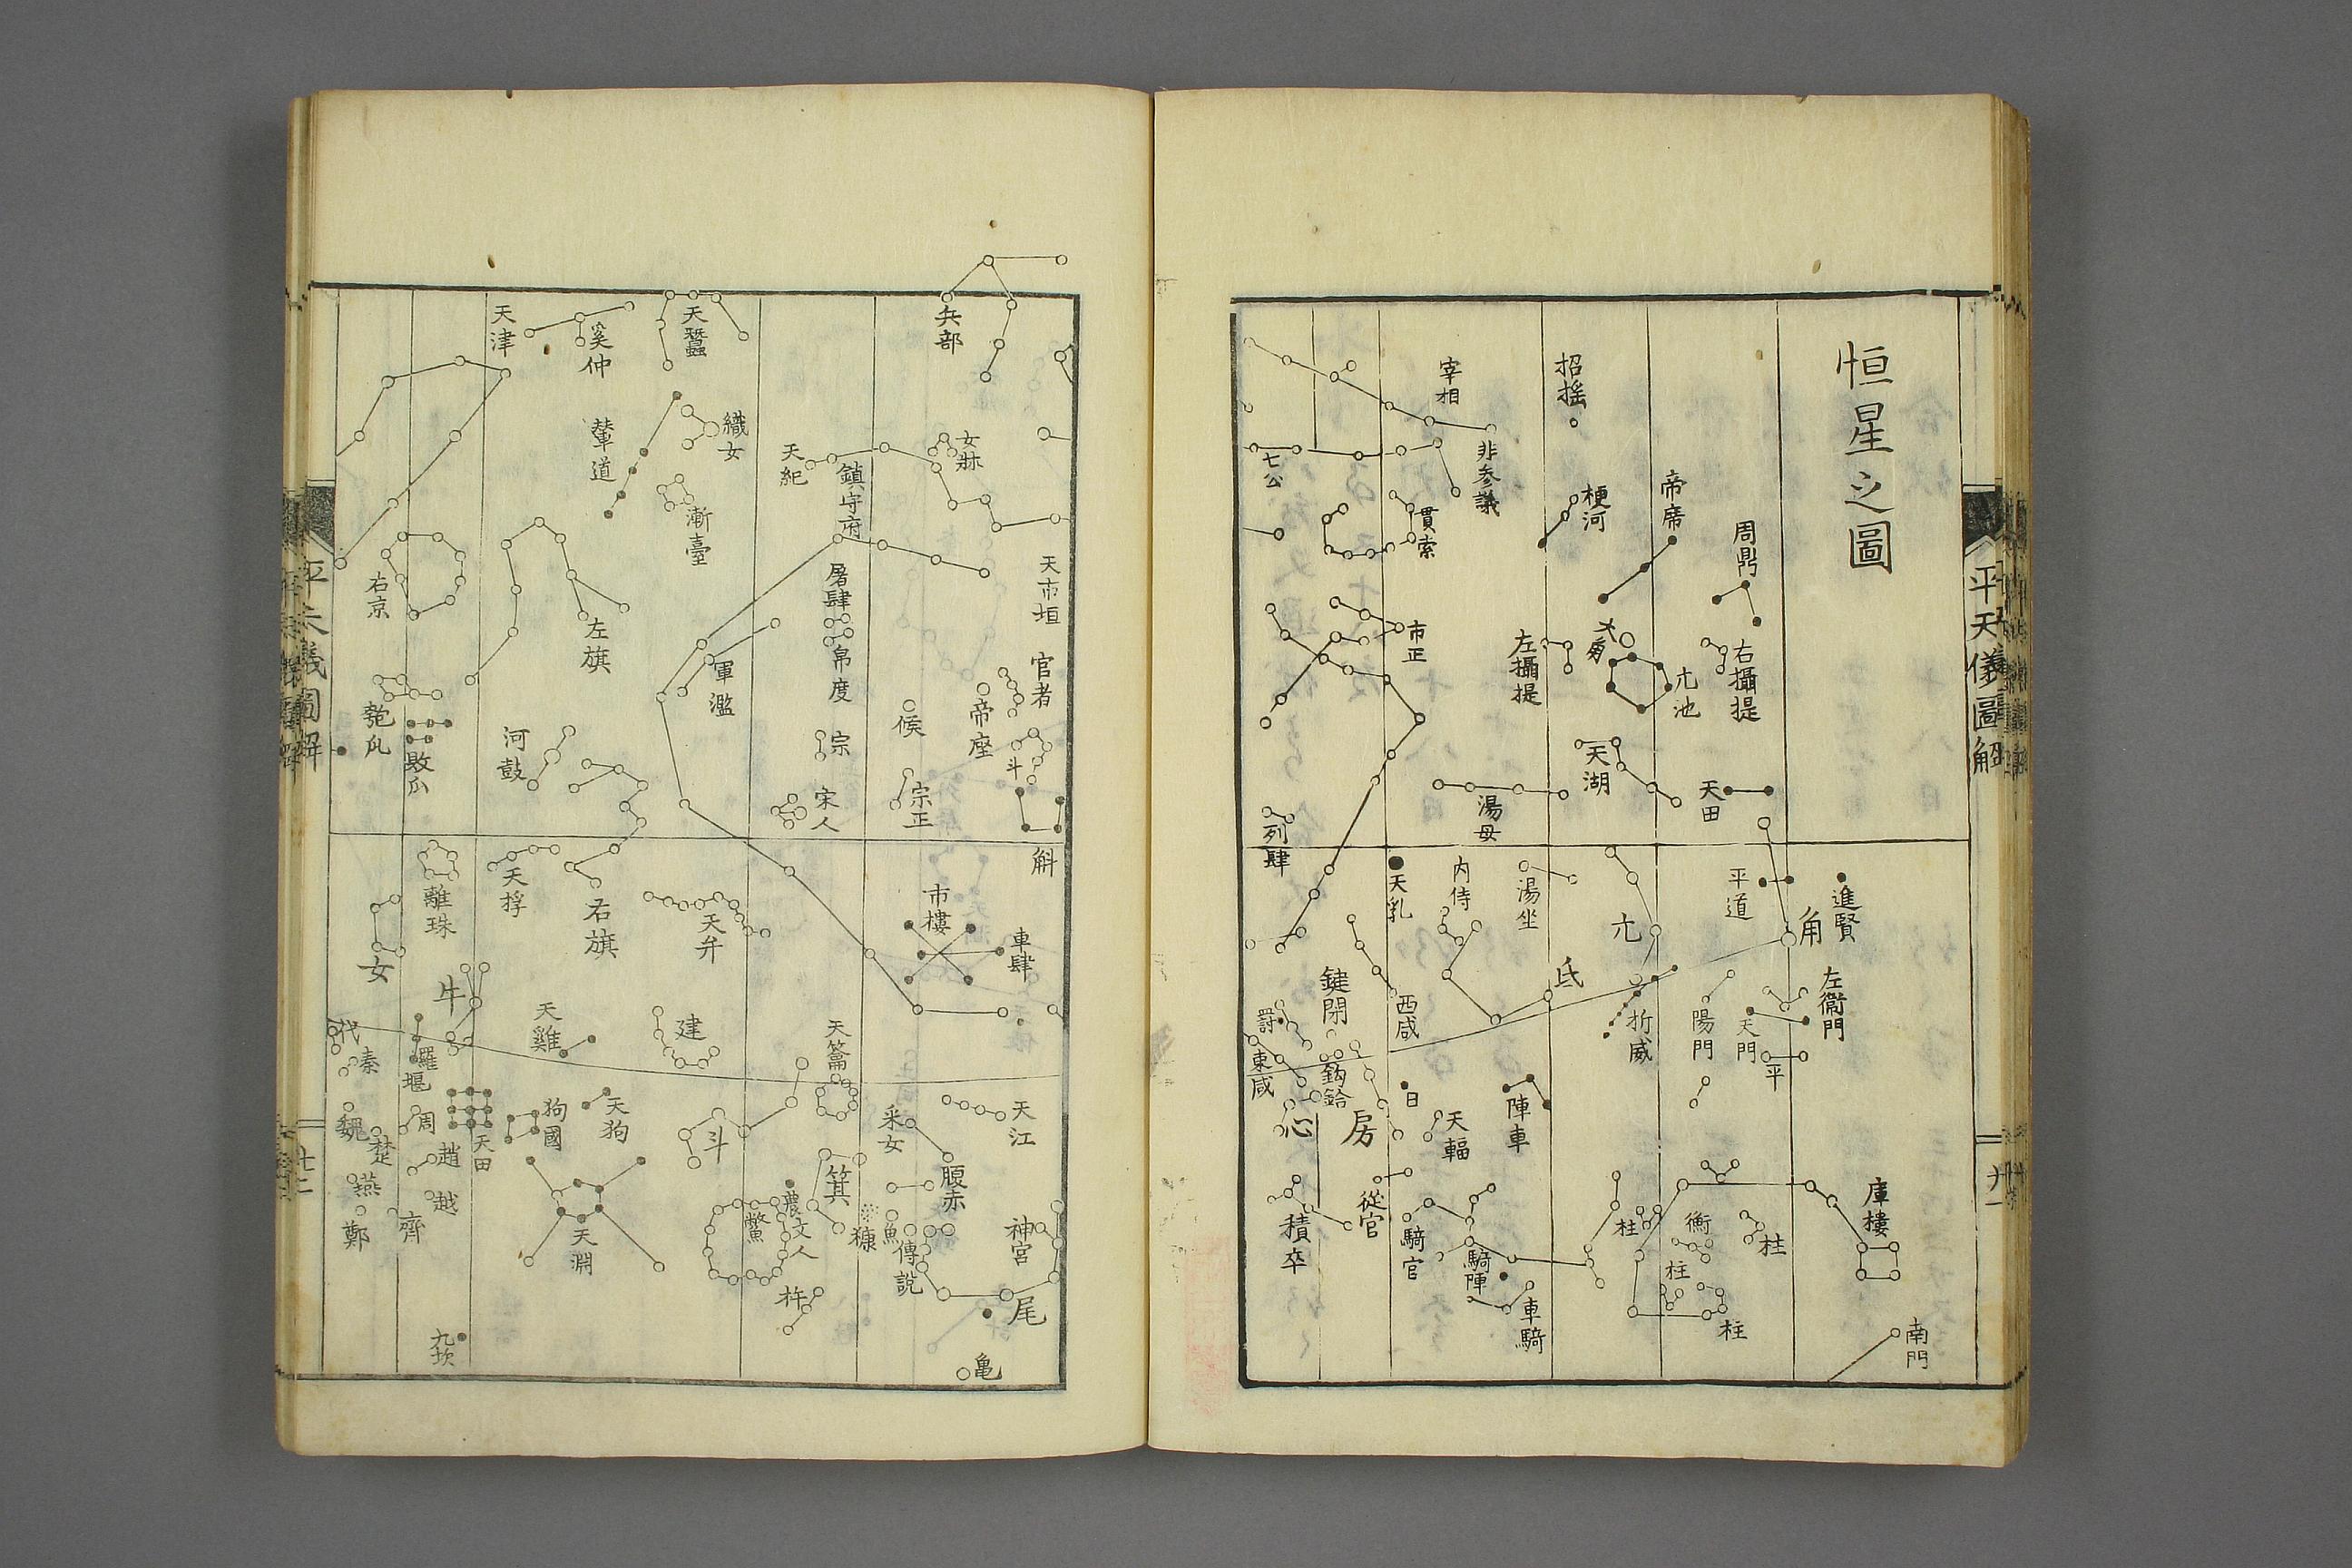 恒星之圖
平天儀圖解
周鼎
帝席
右攝提
亢池
大角
梗河
招搖
左攝提
天田
天湖
宰相
非参議
湯母
貫索
市正
七公
列肆
進賢
角
平道
左衞門
天門
平
陽門
亢
折威
氐
湯坐
内侍
天乳
西咸
鍵閉
鈎鈐
罰
東咸
心
房
日
天輻
陣車
從官
積卒
騎官
騎陣
車騎
柱
衡
柱
柱
柱
庫樓
南門
兵部
女牀
天市垣
官者
帝座
斗
候
宗正
斛
天紀
鎮守府
屠肆
帛度
宗
宋人
天蠶
織女
漸臺
輦道
奚仲
天津
左旗
軍濫
河鼓
右京
匏瓜
敗瓜
市樓
車肆
天弁
右旗
天桴
離珠
女
牛
天雞
建
天籥
天江
采女
腹赤
箕
糠
魚
傅説
神宮
尾
亀
斗
農丈人
鱉
杵
天狗
狗國
天田
天淵
羅堰
代
秦
周
趙
越
齊
魏
楚
燕
鄭
九坎
平天儀圖解